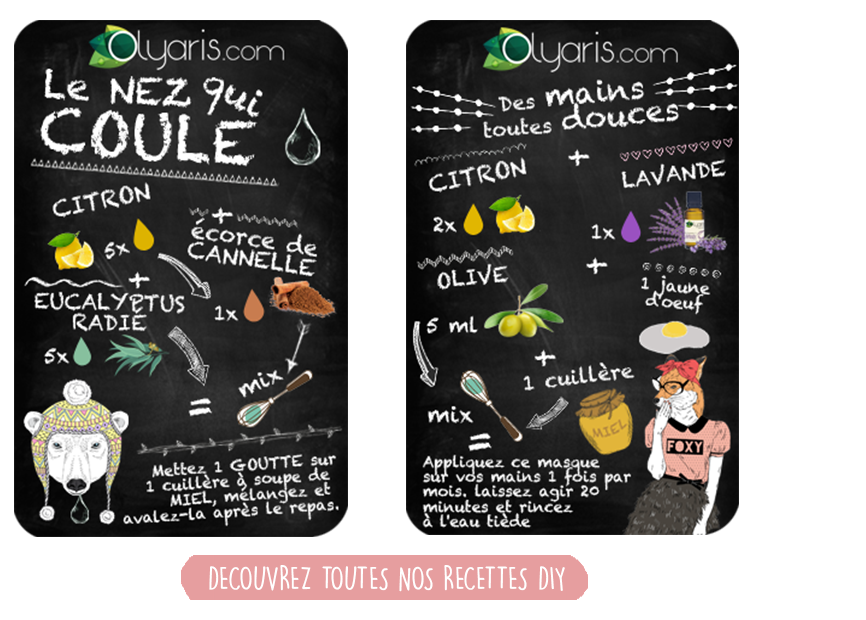 Olyaris.com
Le NEZ qui
COULE
CITRON
5x
+
écorce de
CANNELLE
1x
+
EUCALYPTUS
RADIÉ
5x
mix
=
Mettez 1 GOUTTE sur
1 cuillère à soupe de
MIEL, mélangez et
avalez-la après le repas.
Olyaris.com
Des mains
toutes douces
CITRON
2x
+
LAVANDE
1x
+
OLIVE
5 ml
1 jaune
d'oeuf
+
1 cuillère
MIEL
mix
=
FOXY
Appliquez ce masque
sur vos mains 1 fois par
mois. laissez agir 20
minutes et rincez
à l'eau tiède
DECOUVREZ TOUTES NOS RECETTES DIY